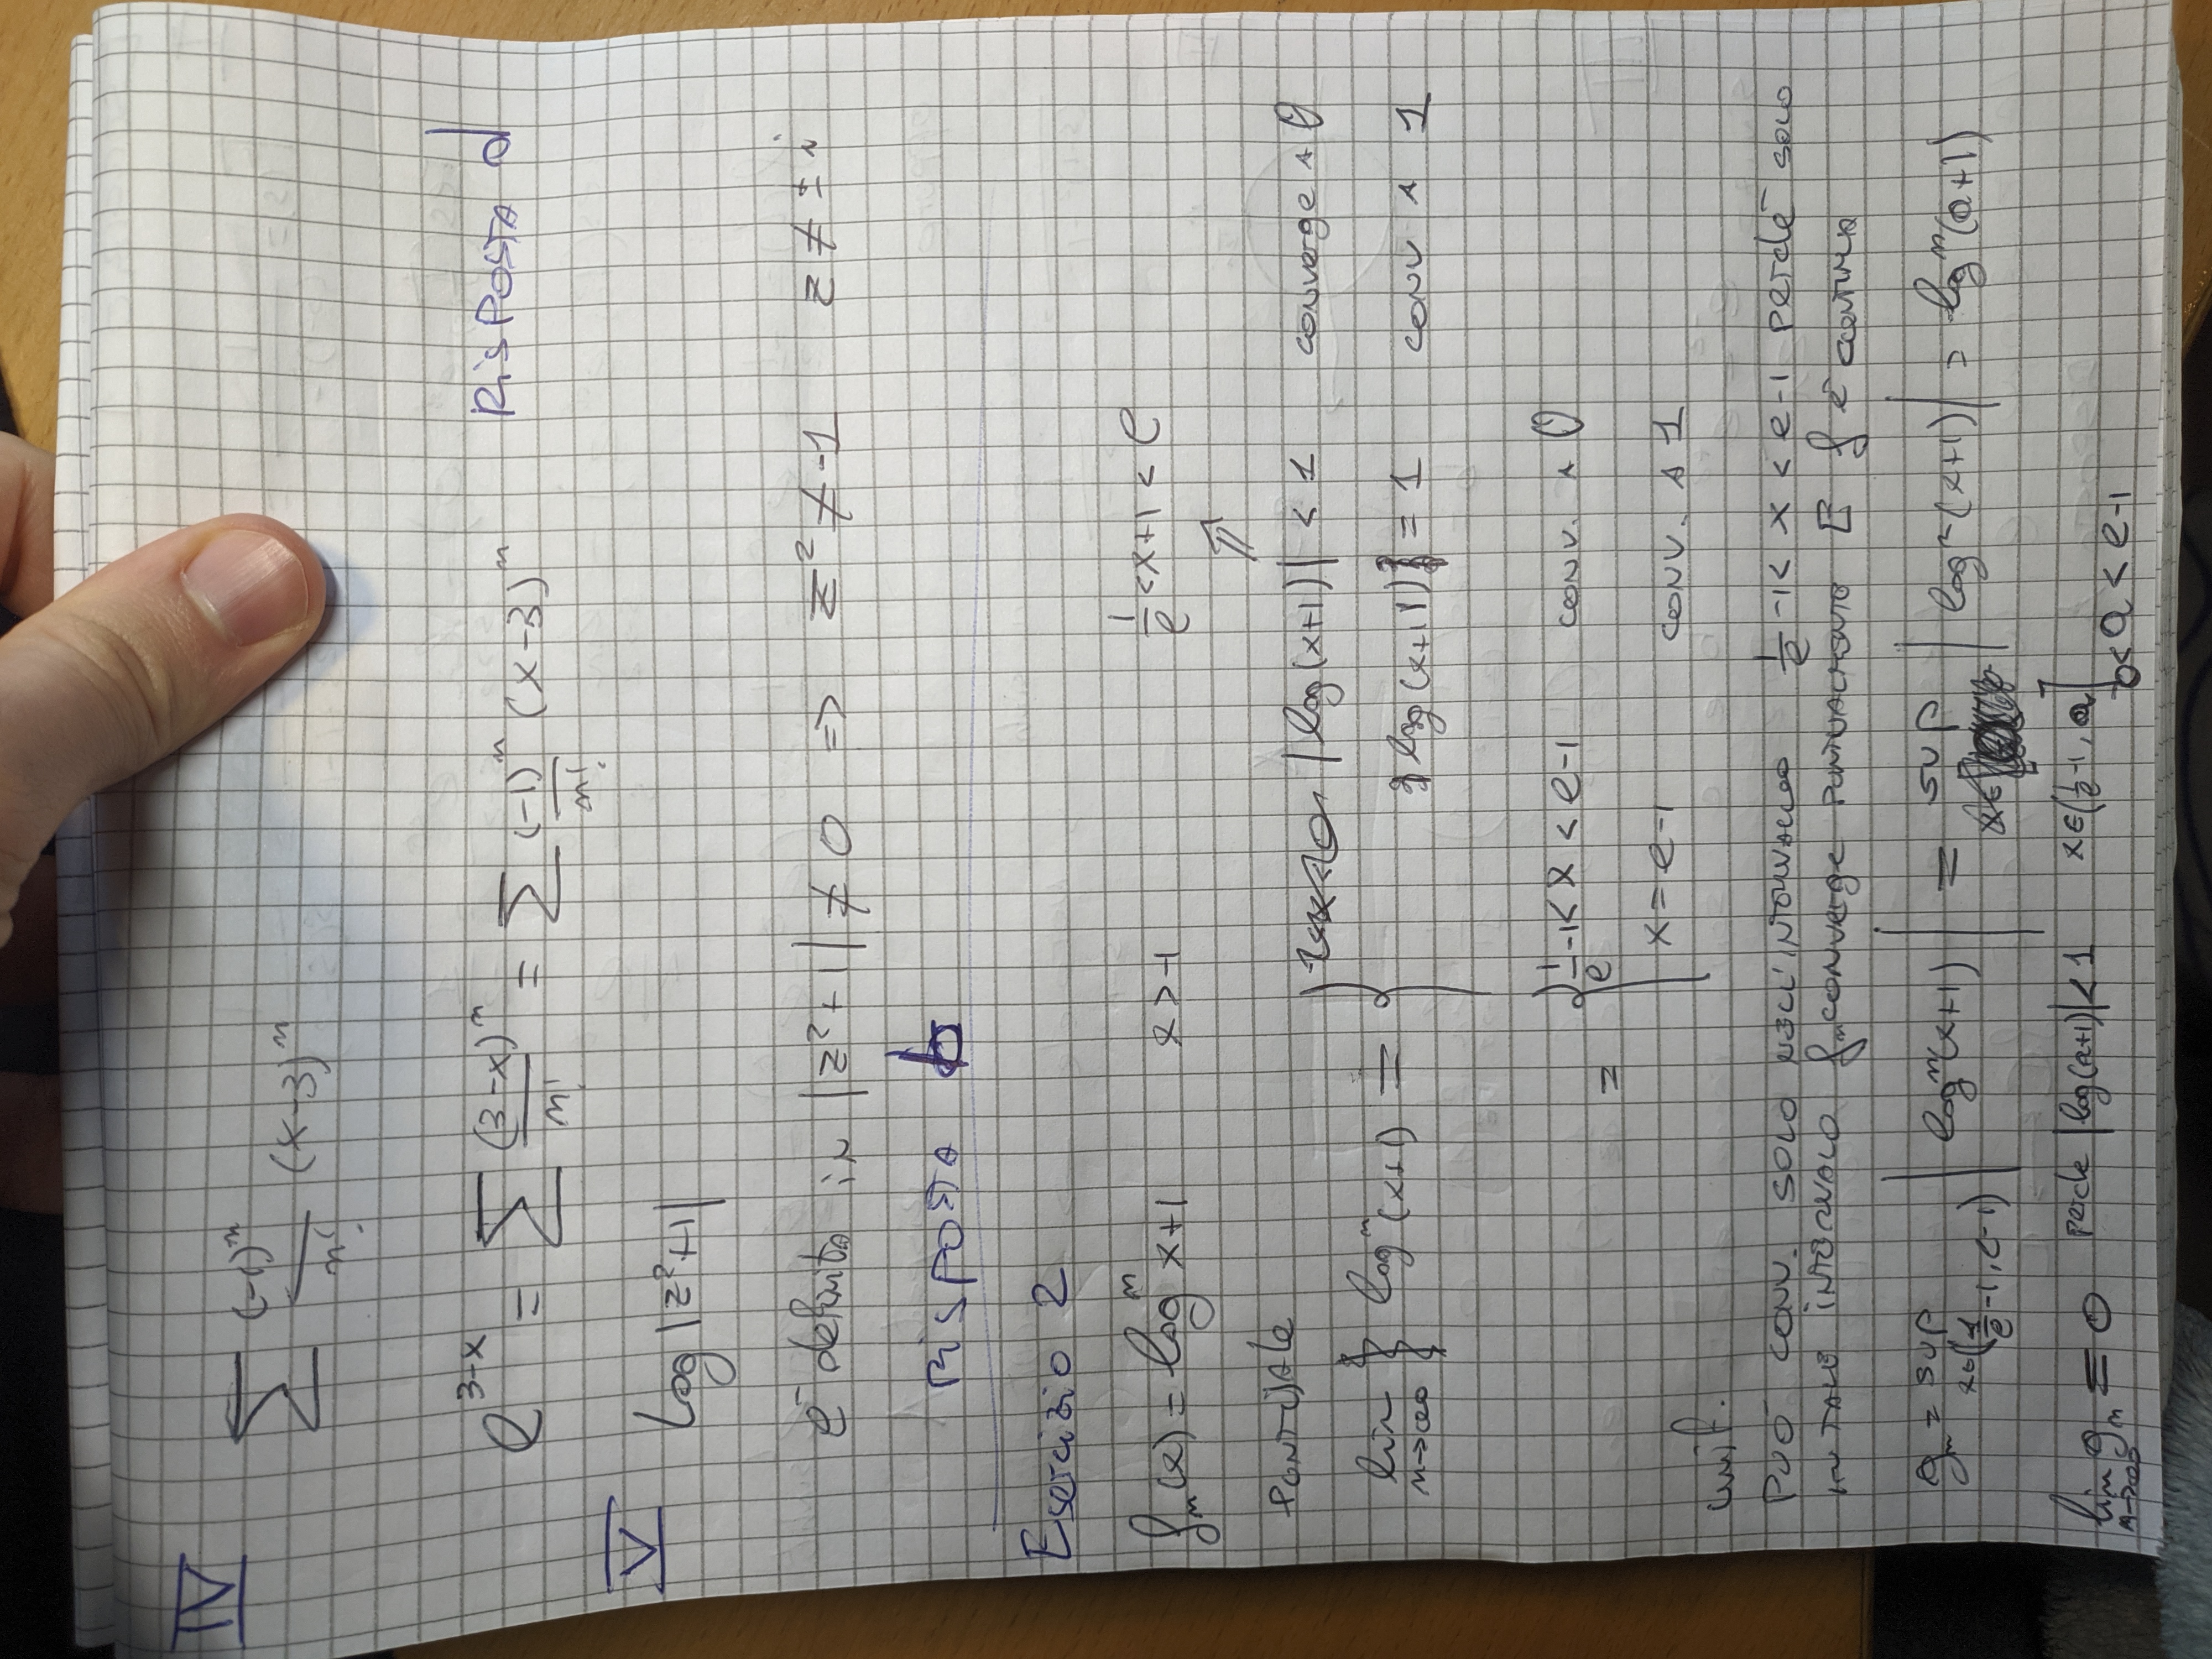 IV
∑ (-1)^n/n! (x-3)^n
e^{3-x} = ∑ (3-x)^n/n! = ∑ (-1)^n/n! (x-3)^n RISPOSTA d
V
log |z²+1|
è definita in |z²+1| ≠ 0 => z² ≠ -1 z ≠ ± i
RISPOSTA b
Esercizio 2
f_n(x) = log^n x+1 x > -1 1/e < x+1 < e
⇗
PUNTUALE
lim n→∞ log^n (x+1) = { |log(x+1)| < 1 converge A 0
log(x+1) = 1 CONV A 1
= { 1/e -1 < x < e-1 CONV. A 0
x = e-1 CONV. A 1
unif.
PUÒ CONV. SOLO NELL'INTERVALLO 1/e -1 < x < e-1 perché solo
IN TALE INTERVALLO f_n converge PUNTUALMENTE E f è continua
g_n = sup x∈(1/e -1, e-1) |log^n(x+1)| = sup x∈ |log^n(x+1)| = log^n(a+1)
lim n→∞ g_n = 0 perché |log(a+1)| < 1 x∈(1/e -1, a] 0 < a < e-1